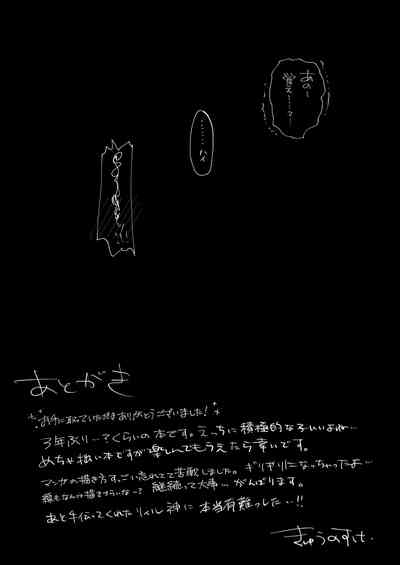 あの…
覚え……て…
……ハイ
あとがき
お手に取っていただきありがとうございました!
3年ぶり…?くらいの本です。えっちに積極的なのいいよね…
めちゃ拙い本ですが楽しんでもらえたら幸いです。
マンガの描き方すごい忘れてて苦戦しました。ギリギリになっちゃったよ…
継続って大事…がんばります。
あと手伝ってくれたリイル神に本当有難うした…!!
きゅうのすけ.